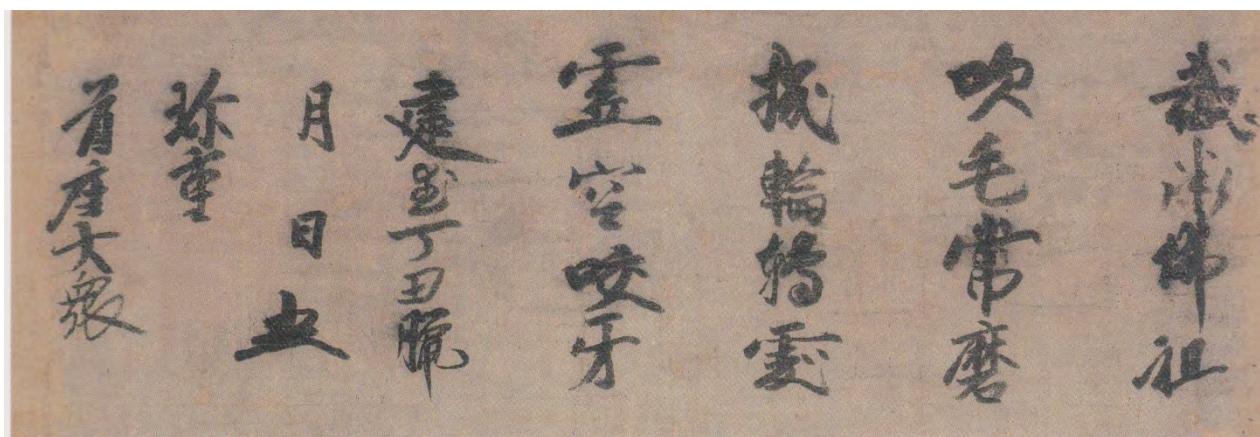 截断佛祖
吹毛常磨
機輪轉處
虚空咬牙
建武丁丑臘
月日
珎重
首座大衆